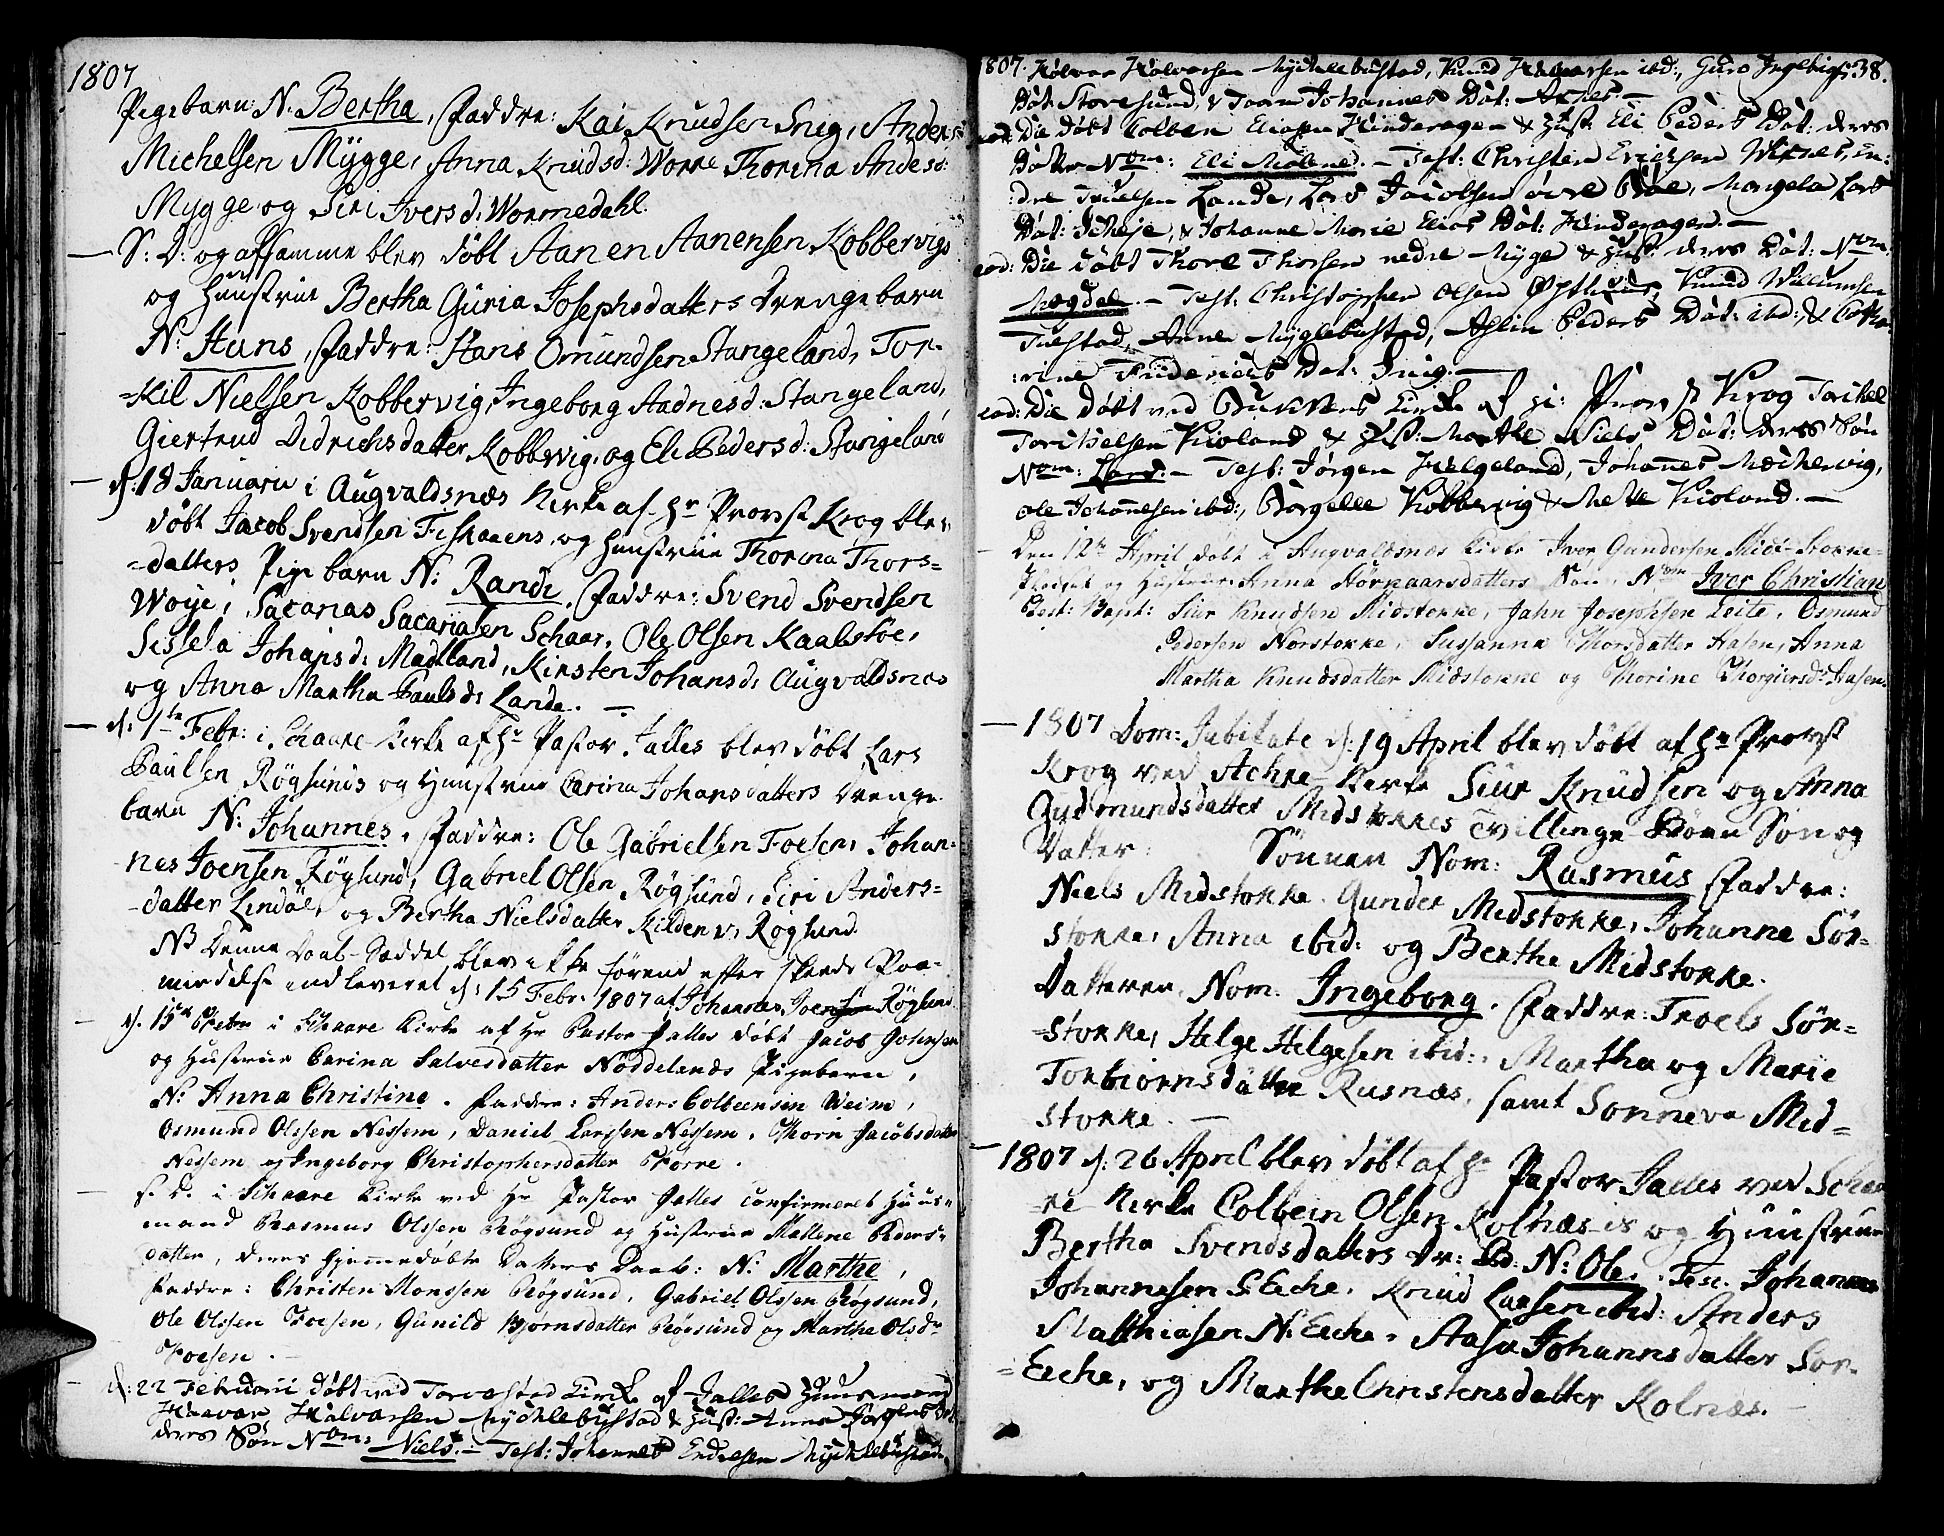 1807
Pigebarn: N. Bertha, Faddre: Kai Knudsen Snig, Anders
Michelsen Mÿgge, Anna Knudsd: Worre Thorina Andersd:
Mygge og Siri Iversd: Wormedahl.
— S: D: og afsamme blev døbt Aanen Aanensen Kobbervigs
og Hustrue Bertha Guria Josephsdatters Drengebarn
N: Hans, Faddre: Hans Omundsen Stangeland, Tor-
=kil Nielsen Kobbervig, Ingeborg Aadnesd: Stangeland,
Giertrud Didrichsdatter Kobbervig, og Eli Pedersd: Stangeland
— d: 18 Januarii i Augvaldsnæs Kirke af Hr Provst Krog blev
døbt Jacob Svendsen Fiskaaens, og Hustrue Thorina Thors=
=datters Pige barn N: Randi, Faddre: Svend Svendsen
Woje, Sacarias Sacariasen Schaar, Ole Olsen Kaalstoe,
Sissela Johansd: Madland, Kirsten Johansd: Augvaldsnæs
og Anna Martha Paulsd: Lande. —
— d: 1te Febr: i Schaare Kirke af Hr Pastor Jalles blev døbt Lars
Paulsen Røgsunds og Hunstrue Carina Johansdatters Drenge
barn N: Johannes, Faddre: Ole Gabrielsen Foesen, Johan-
nes Joensen Røgsund, Gabriel Olsen Røgsund, Siri Anders=
-datter Lindøe, og Bertha Nielsdatter Kilden v. Røgsund
NB Denne Daab-Sæddel blev ikke førend efter skeede Paa-
mindelse indleveret d: 15 Febr. 1807 af Johannes Joensen Røgsund.
— d. 15de Febr i Schaare Kirke af Hr Pastor Jalles døbt Jacob Johnsen
og Hustrue Carina Salvesdatter Nøddelands Pigebarn,
N: Anna Christine. Faddre: Anders Colbensen Weim,
Osmund Olssen Nessem, Daniel Larssen Nessem, Thorn Jacobsdatter
Nessem og Ingeborg Christophersdatter Førre.
— S. D. i Schaare Kirke ved Hr Pastor Jalles confirmeret Huus=
mand Rasmus Olssen Røgsund og Hustrue Mallene Peders=
datter, deres hjemmedøbte Datters Daab: N: Marthe,
Faddre: Christen Monssen Røgsund, Gabriel Olssen Røgsund,
Ole Olssen Foesen, Gunild Bjørnsdatter Røgsund og Marthe Olsdr
Foesen. —
— d: 22 Februarii døbt ved Torvestad Kirke af Jalles Huusmand
Haavar Halvarsen Myklebustad & Hust: Anne
deres Søn Nom: Niels. — Test: Johannes Endresen Myklebustad
1807. Holvar Halvarsen Myklebustad, Knud Halvarsen ibd:, Guro Ingebrigts 38.
Dat: Storesund, & Toren Johannes Dat: —
eod: Die døbt Colben Hinderagen & Hust: Eli Peders Dat: deres
Datter Nom: Eli Malene. — Test: Christen Ericksen En:
:dre Truelsen Lande, Lars Jacobsen øvre Bøe, Lars
Dat: & Johanne Marie Elias Dat: Hinderagen. —
eod: Die døbt Thore Thorsen nedre Myge & Hust: deres Dat: Nom:
Magdel. — Test: Christopher Olsen Knud Willumsen
Tuastad, Anne Myklebustad, Peders Dat: ibd:, & Catha:
:rine Friderichs Dat: Snig. —
eod: Die døbt ved Buknens Kirke af Hr: Provst Krog Torkel
Torkelsen Kioland & Hust: Marthe Niels Dat: deres Søn
Nom: Lars. — Test: Jørgen Helgeland, Johannes
ole Johannesen ibd:, Børgelle Kobbervig & Mette Kioland. —
— Den 12te April døbt i Augvaldsnæs Kirke Iver Gundersen Mid-Stokke-
og Hustrue Anna Søn, Nom Iver Christian
Siur Knudsen Midstokke, Jahn Josephsen Leite, Osmund
Pedersen Norstokke, Sussanna Thorsdatter Hasen, Anna
Martha Knudsdatter Midstokke og Thorine Thorgiersdr Hasen.
— 1807 Dom: Jubilate d: 19 April blev døbt af Hr Provst
Krog ved Achre-Kirke Siur Knudsen og Anna
Gudmundsdatter Midstokkes Tvillinge Børn Søn og
Datter: Sønnen Nom: Rasmus Faddre:
Niels Midstokke, Gunder Midstokke, Johanne Sør-
stokke, Anna ibid: og Berthe Midstokke.
Datteren. Nom. Ingeborg. Faddre: Troels Sør=
=stokke, Helge Helgesen ibid:, Martha og Marie
Torbiørnsdatter Rusnæs, samt Sonneva Mid=
stokke. —
— 1807 d: 26 April blev døbt af Hr Pastor Jalles ved Schaa
=re Kirke Colbein Olsen Kolnæs is og Hunstrue
Bertha Svendsdatters Dr: Bd: N: Ole. Tes: Johannes
Johannesen S Eeche, Knud Larsen ibid: Anders
Matthiasen N: Eeche, Aasa Johannsdatter Sør-
=Eeche, og Marthe Christensdatter Kolnæs. —